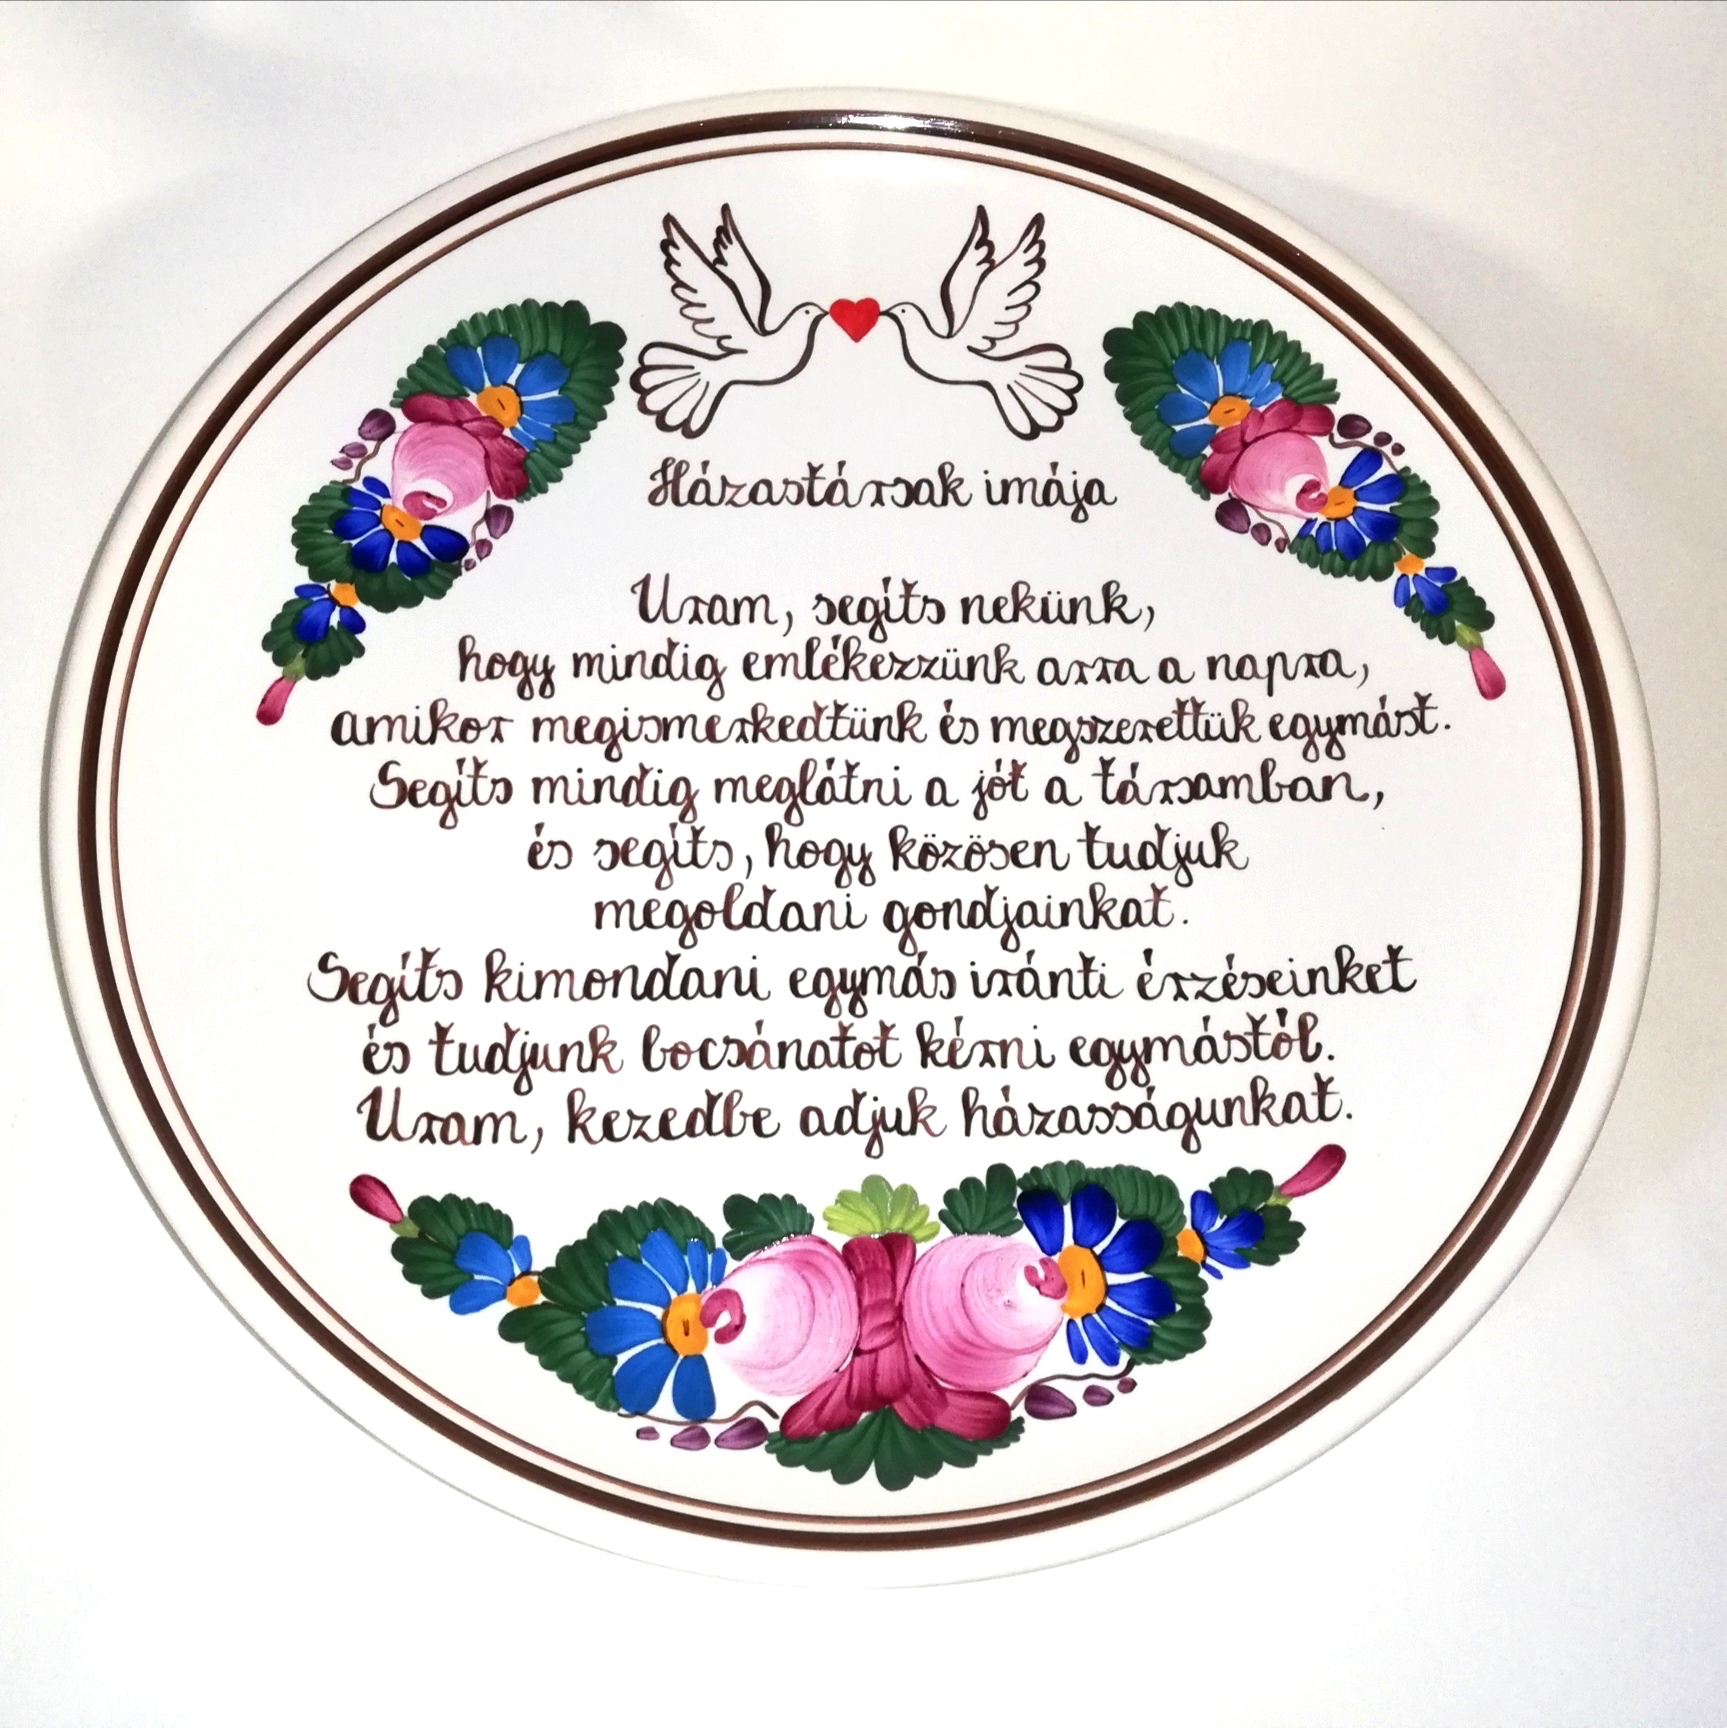 Házastársak imája
Uram, segíts nekünk,
hogy mindig emlékezzünk arra a napra,
amikor megismerkedtünk és megszerettük egymást.
Segíts mindig meglátni a jót a társamban,
és segíts, hogy közösen tudjuk
megoldani gondjainkat.
Segíts kimondani egymás iránti érzéseinket
és tudjunk bocsánatot kérni egymástól.
Uram, kezedbe adjuk házasságunkat.